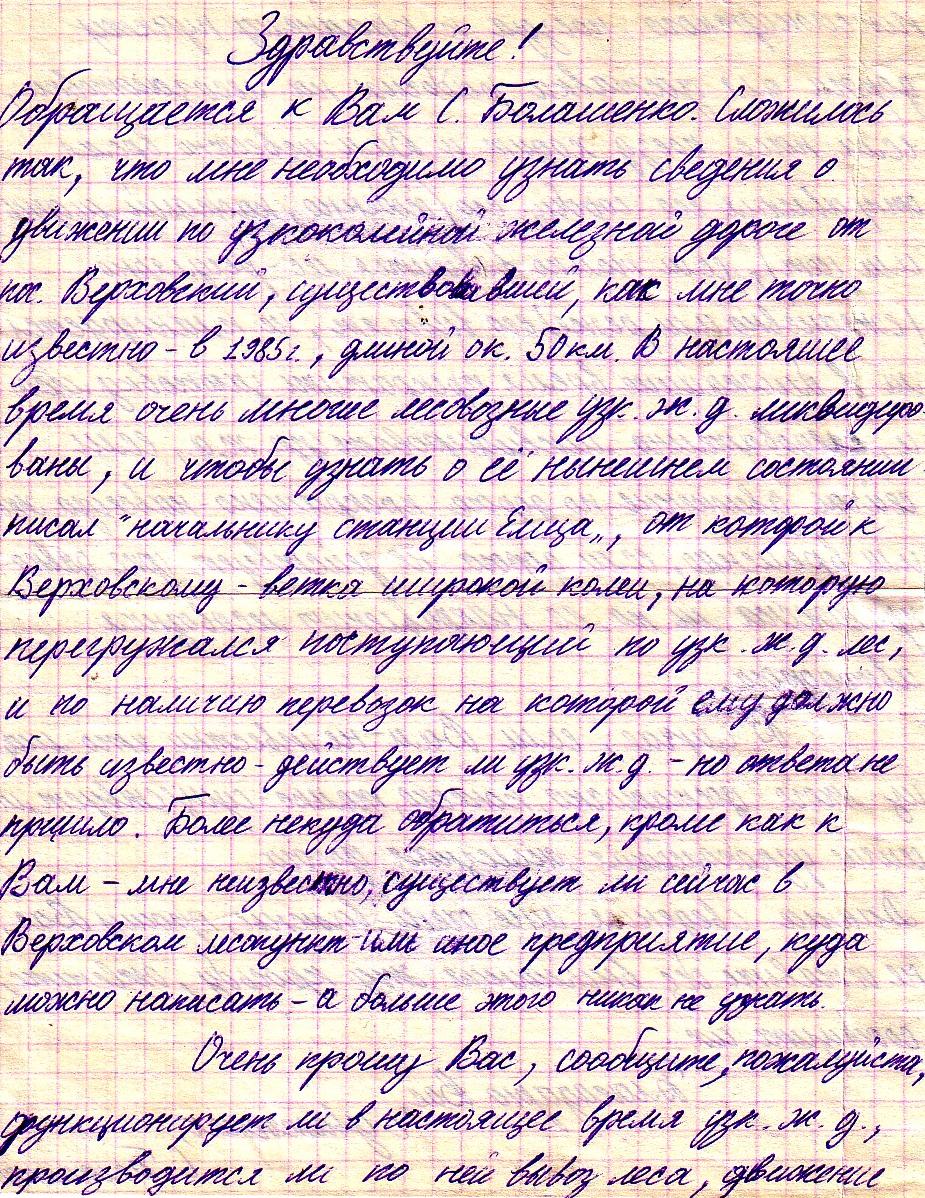 Здравствуйте!
Обращается к Вам С. Болашенко. Сложилось
так, что мне необходимо узнать сведения о
движении по узкоколейной железной дороге от
пос. Верховский, существовавшей, как мне точно
известно - в 1985г., длиной ок. 50 км. В настоящее
время очень многие лесовозные узк. ж. д. ликвидиро-
ваны, и чтобы узнать о её нынешнем состоянии
писал "начальнику станции Елица", от которой к
Верховскому - ветка широкой колеи, на которую
перегружался поступающий по узк. ж. д. лес,
и по наличию перевозок на которой ему должно
быть известно - действует ли узк. ж. д. - но ответа не
пришло. Более некуда обратиться, кроме как к
Вам - мне неизвестно, существует ли сейчас в
Верховском лесопункт или иное предприятие, куда
можно написать - а больше этого никак не узнать.
Очень прошу Вас, сообщите, пожалуйста,
функционирует ли в настоящее время узк. ж. д.,
производится ли по ней вывоз леса, движение